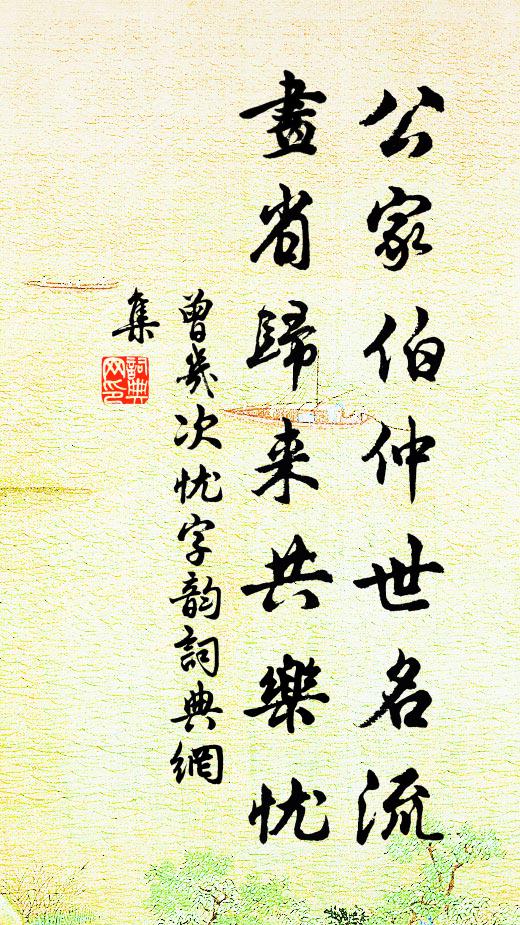 公家伯仲世名流
畫省歸来共樂忧
曾幾次忧字韵詞典網
集
詞典网印